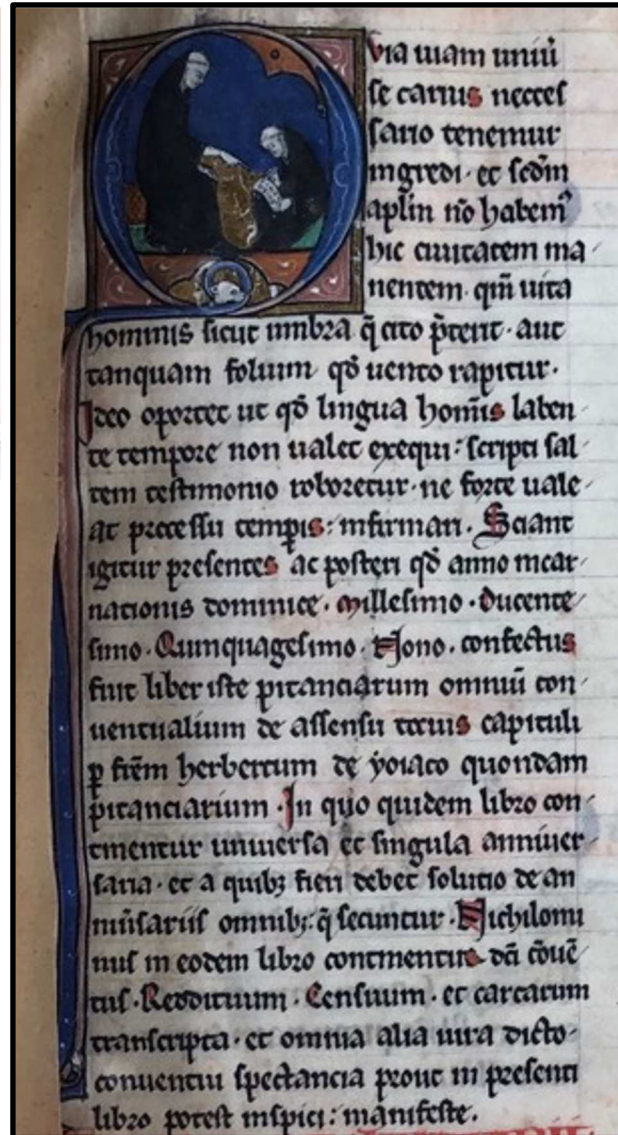 Quia uiam uniu̾
se carnis neccef
sario tenemur
ingredi · et scd̄m
apl̄m nō habem᾽
hic ciuitatem ma
nentem · qm̄ uita
hominis sicut umbra q̄ cito p̄terit · aut
tanquam folium qđ uento rapitur ·
Ideo oportet ut qđ lingua homīs laben
te tempore non ualet exequi : scripti sal
tem testimonio roboretur · ne forte uale
at processu temp̄is : infirmari . Sciant
igitur presentes ac posteri qđ anno incar
nationis dominice · Millesimo · Ducente
simo · Quinquagesimo · Nono · confectus
fuit liber iste pitanciarum omniū con
uentualium de assensu tocius capituli
ꝑ frēm herbertum de yoiaco quondam
pitanciarium · In quo quidem libro con
tinentur uniuersa et singula anniuer
saria · et a quibꝫ fieri debet solutio de an
niūsariis omnibꝫ q̄ secuntur · Nichilomi
nus in eodem libro continentur dc̄i cōuē
tus · Reddituum · Censuum · et cartarum
transcripta · et omnia alia iura dicto
conuentui spectancia prout in presenti
libro potest inspici : manifeste .